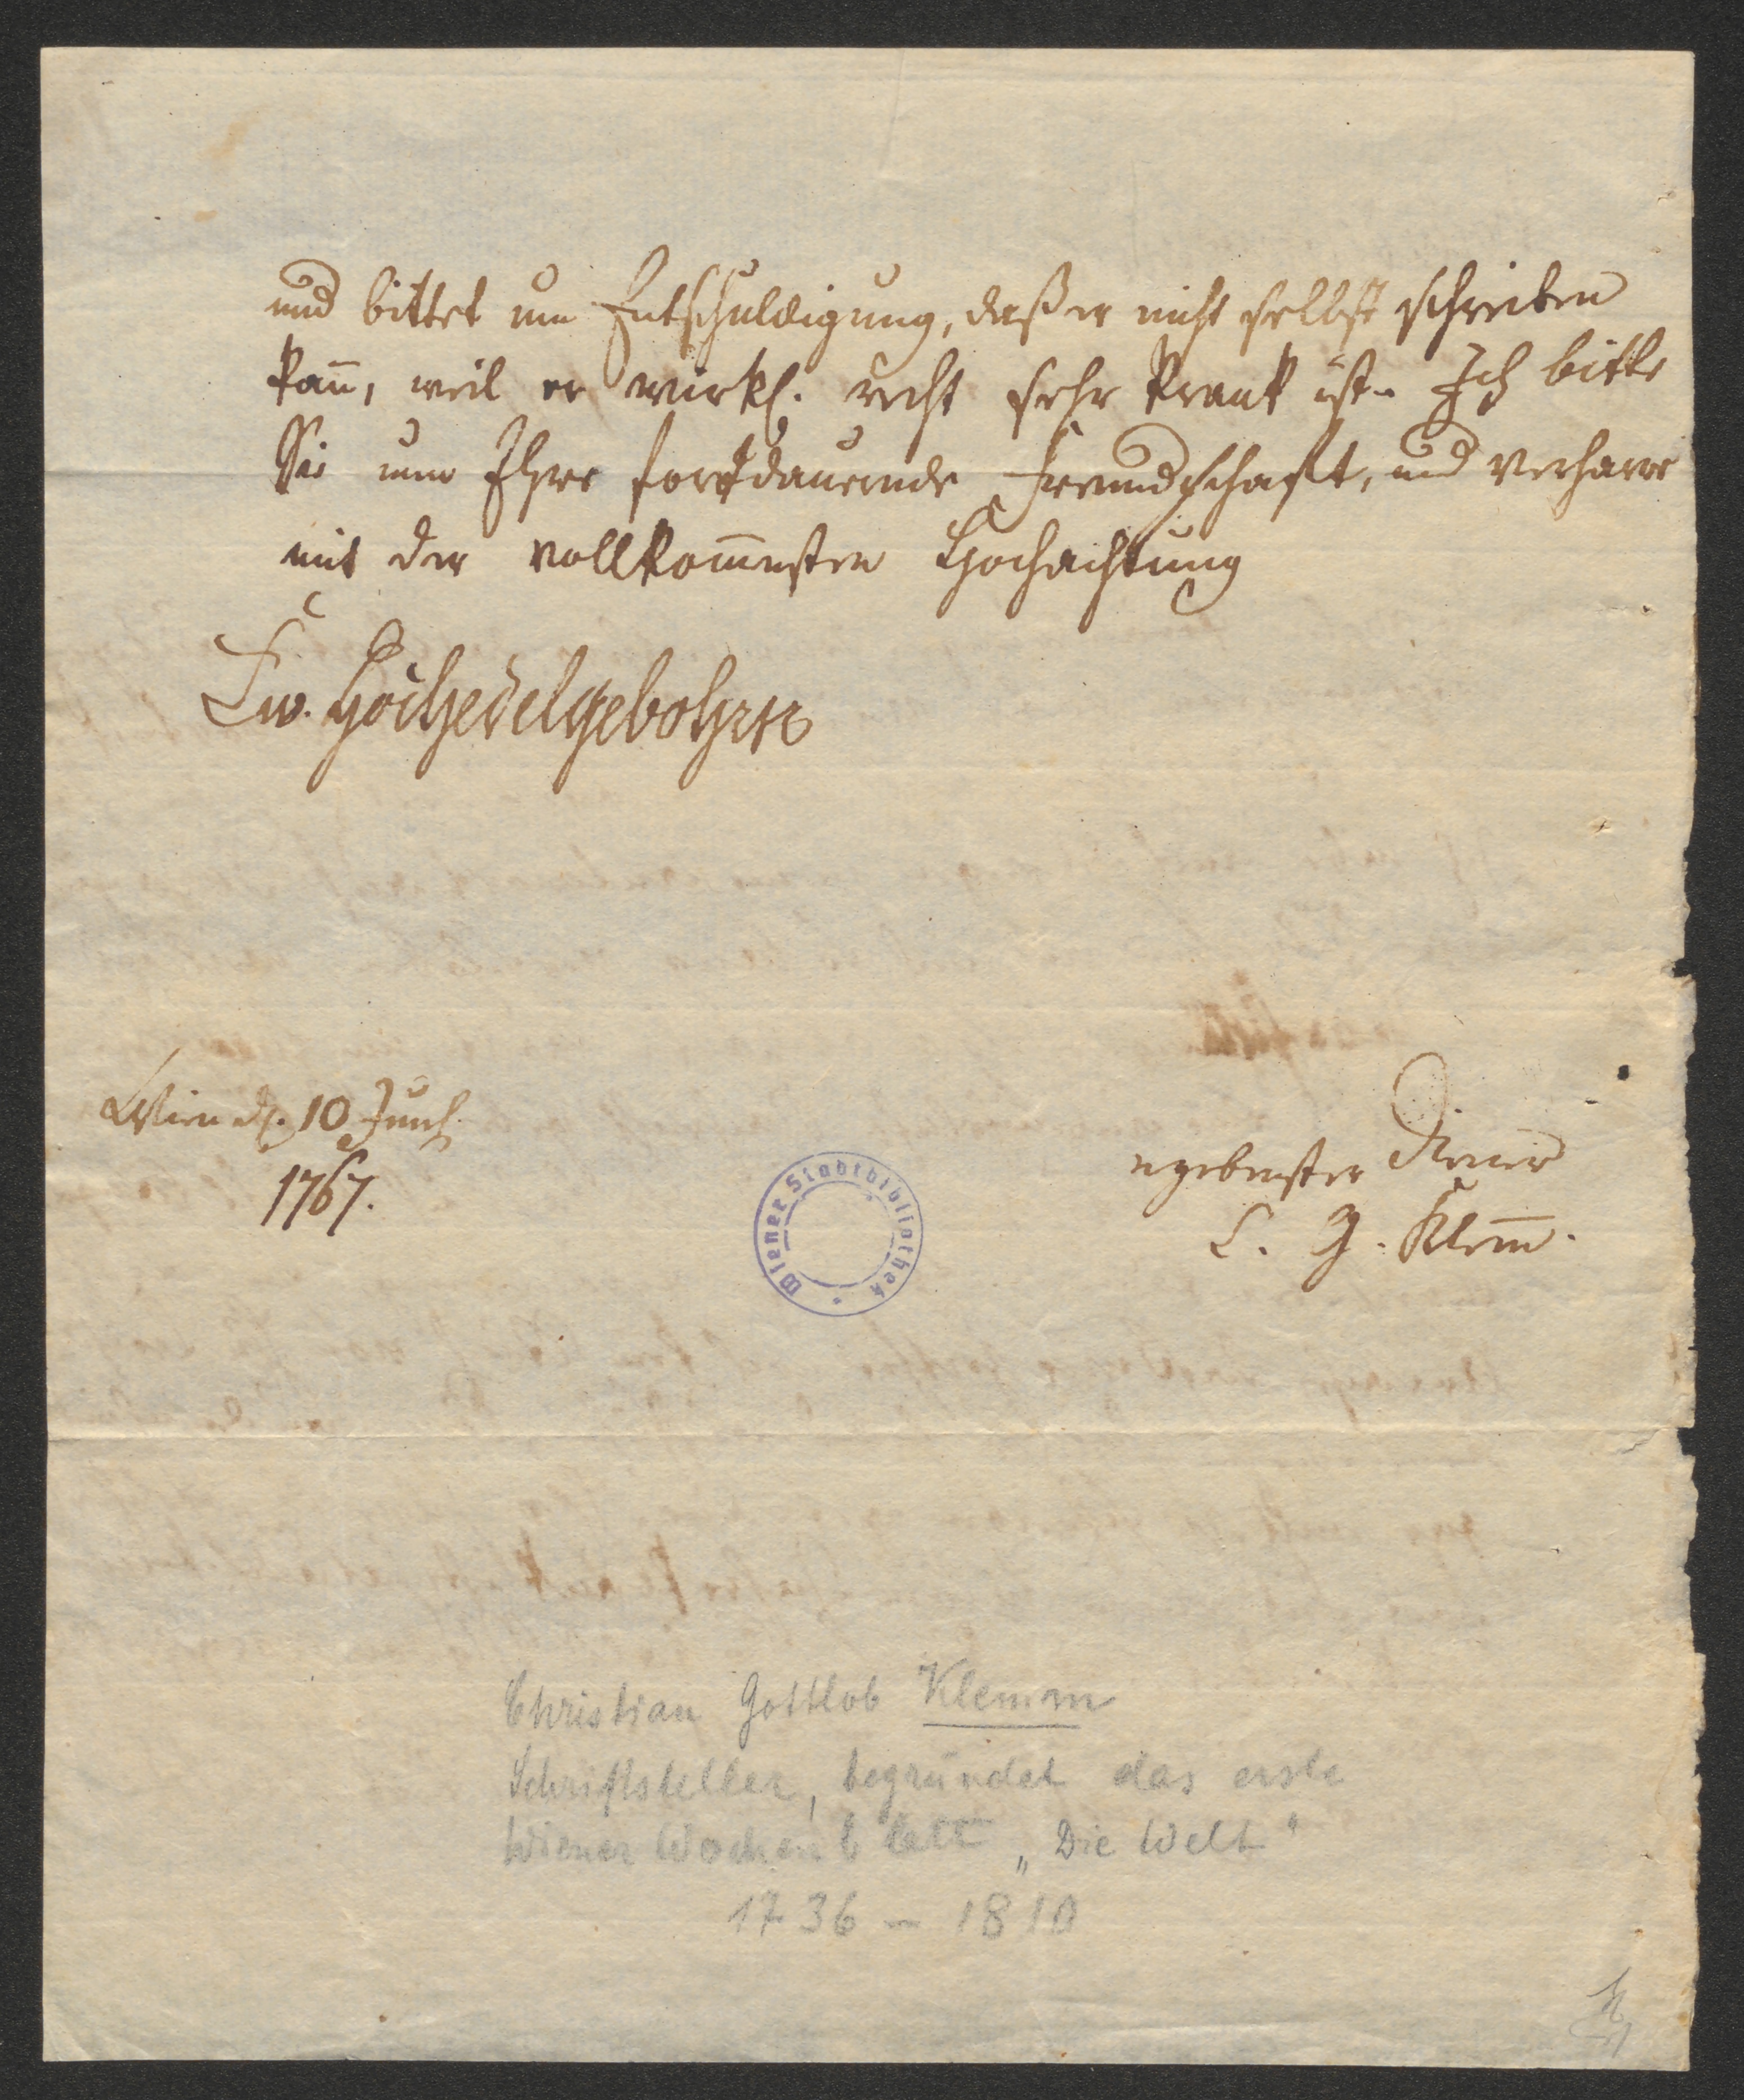 und bittet um Entschuldigung, daß er nicht selbst schreiben
kan̄, weil er wirkl. recht sehr krank ist. Ich bitte
Sie um Ihre fortdauernde Freundschaft, und verharre
mit der vollkom̄ensten Hochachtung
Ew. Hochedelgebohrn
Wien d. 10 Junȳ
1767.
ergebenster Diener
C. G. Klem̄.
Wiener Stadtbibliothek
Christian Gottlob Klemm
Schriftsteller, begründet das erste
Wiener Wochenblatt „Die Welt"
1736 – 1810